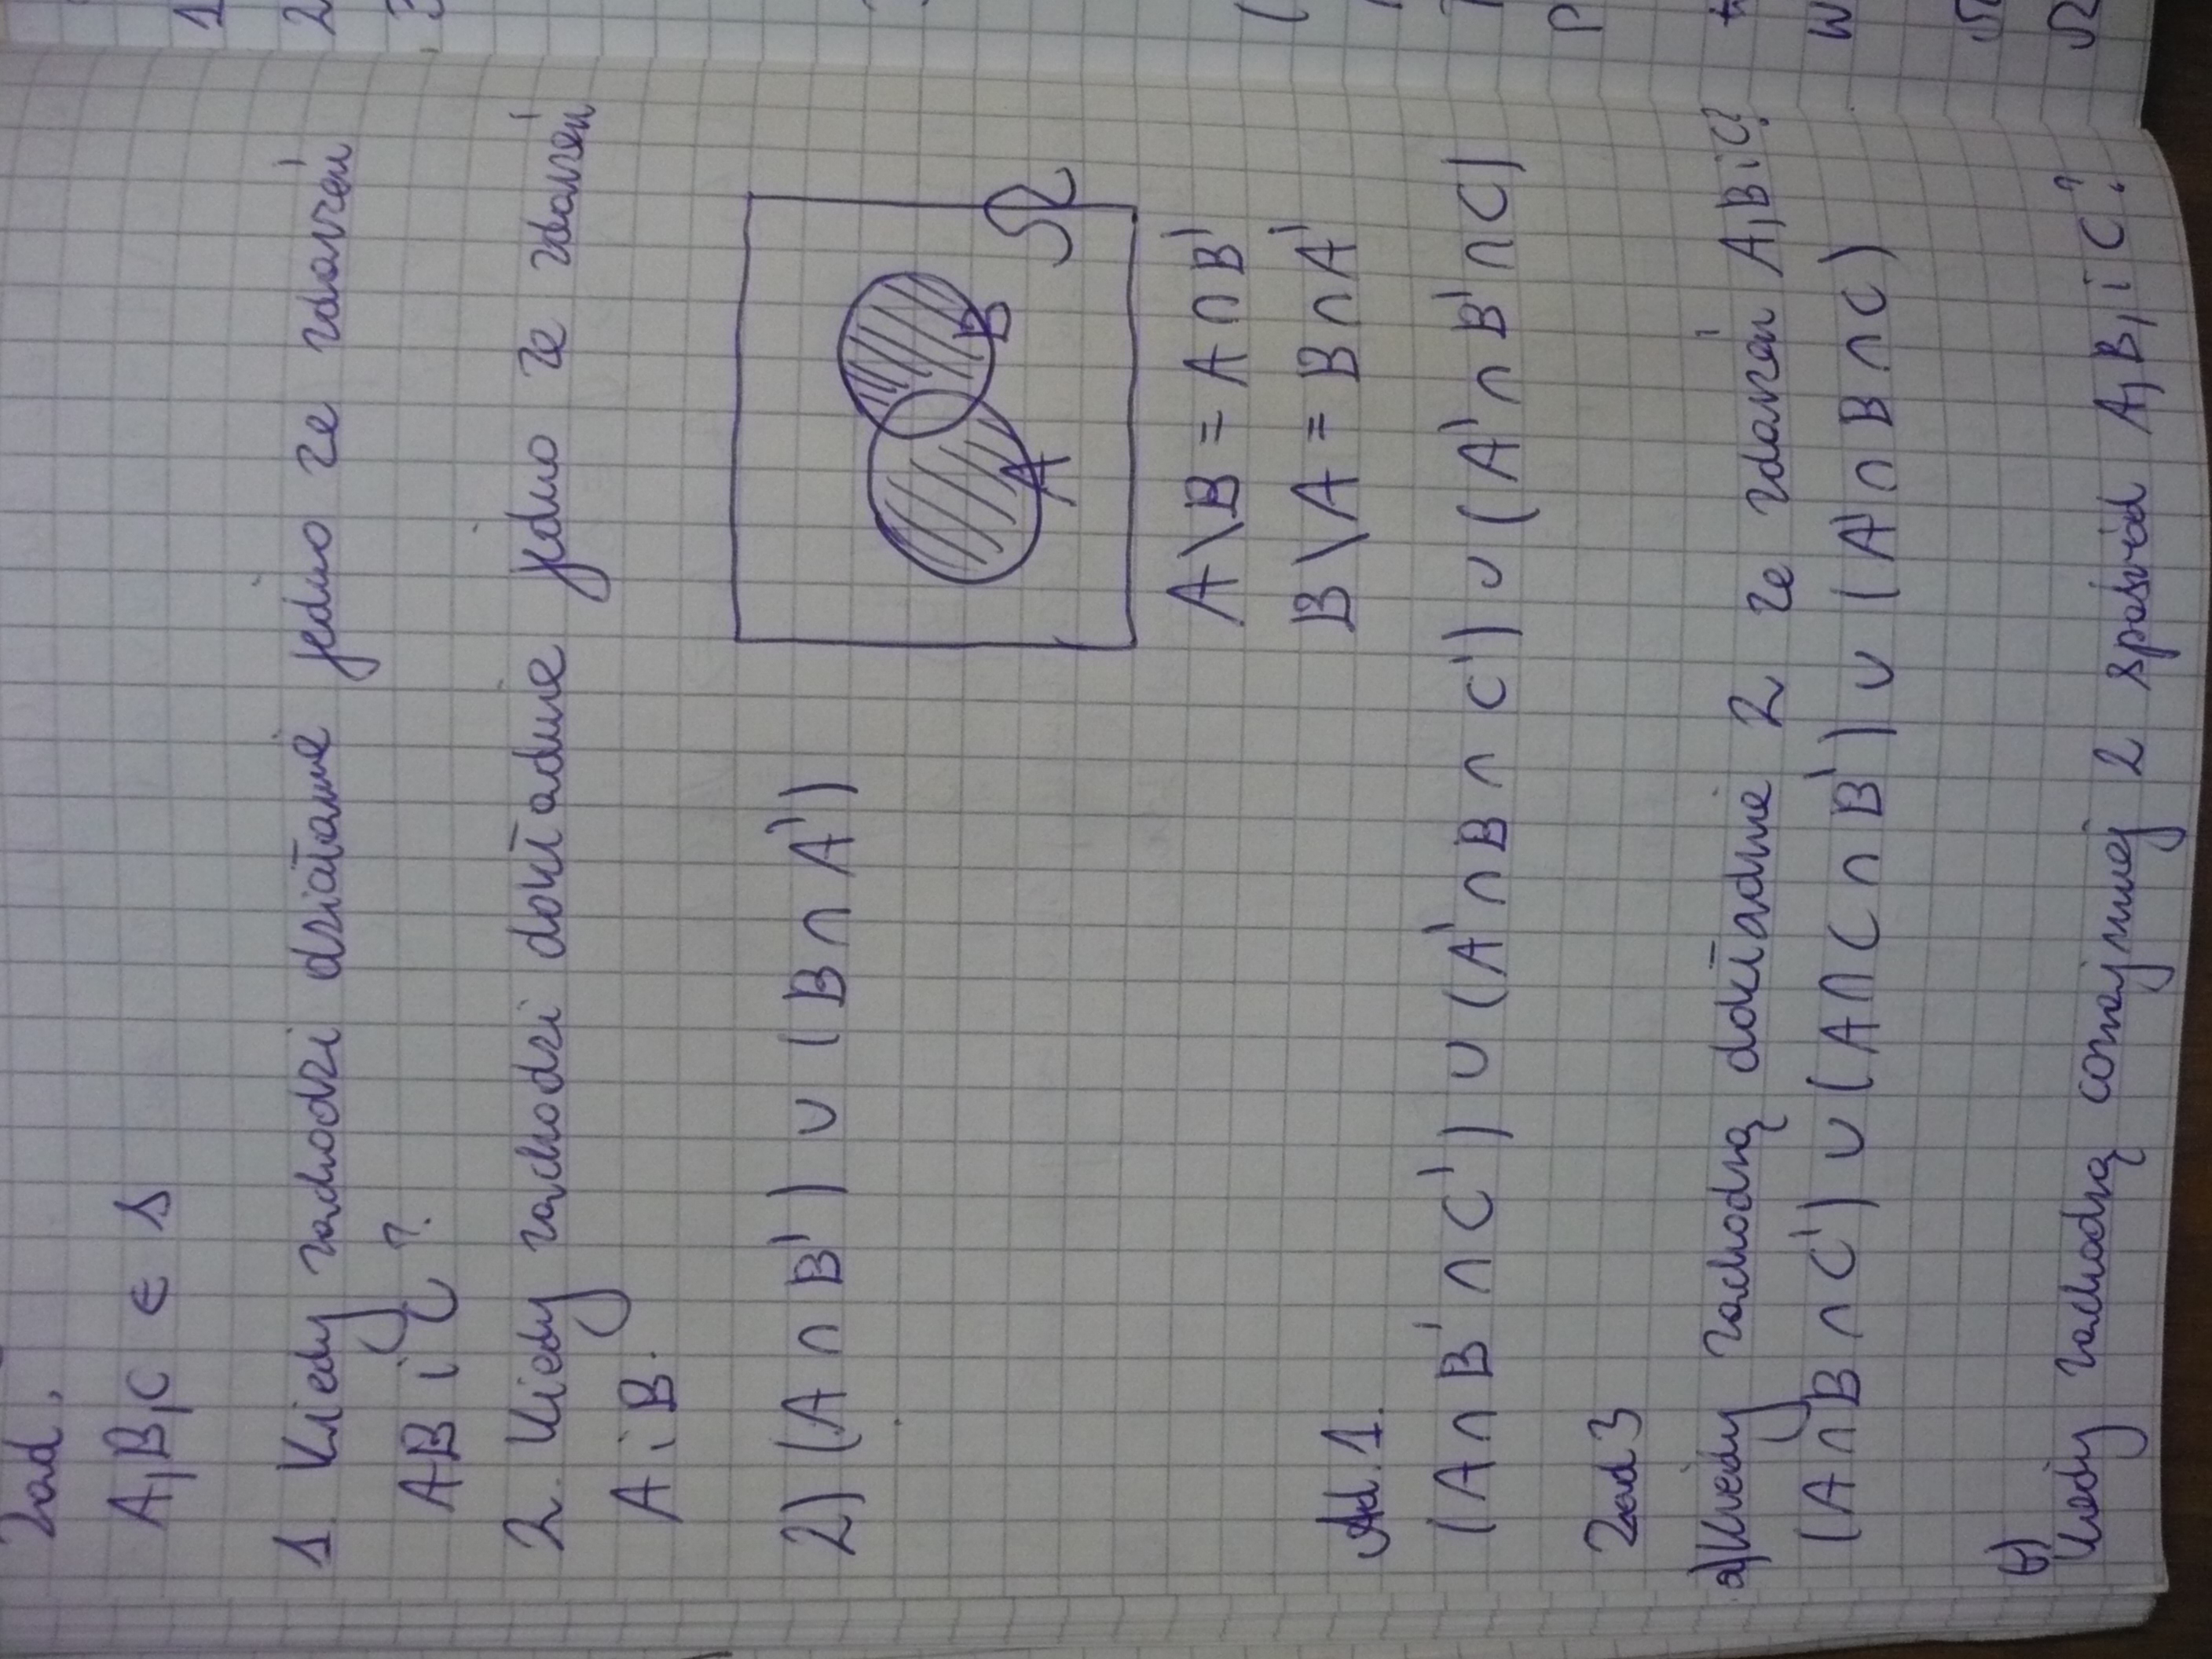 Zad.
A, B, C ∈ S
1. Kiedy zachodzi działanie jedno ze zdarzeń
AB i C?
2. Kiedy zachodzi dokładnie jedno ze zdarzeń
A i B.
2) (A ∩ B') ∪ (B ∩ A')
A
B
Ω
A \ B = A ∩ B'
B \ A = B ∩ A'
Ad. 1.
(A ∩ B' ∩ C') ∪ (A' ∩ B ∩ C') ∪ (A' ∩ B' ∩ C)
Zad 3
a) Kiedy zachodzą dokładnie 2 ze zdarzeń A, B i C?
(A ∩ B ∩ C') ∪ (A ∩ C ∩ B') ∪ (A' ∩ B ∩ C)
b)
Kiedy zachodzą conajmniej 2 spośród A, B, i C?
1
2
3
P
W
Ω
Ω